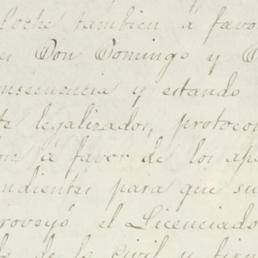 loche tambien a favo
Don Domingo y
nsecuencia y estando
te legalizados, protoco
a favor de los ape
ndientes para que su
proveyó el Licenciado
de lo civil y firm